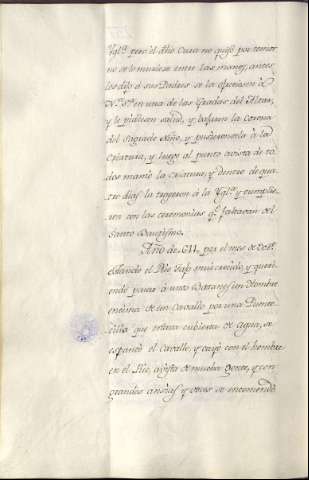 Ygl.ª pero el dho Cura no quiso por temor
no se le muriese entre las manos, antes
les dijo à sus Padres se la ofreciesen à
N.ª S.ª en una de las Gradas del Altar,
y le pidiesen salud, y bajasen la Corona
del Sagrado Niño, y pusieronsela à la
Criatura, y luego al punto à vista de to
dos mamò la Criatura, y dentro de qua
tro dias la trageron à la Ygl.ª y cumplie
ron con las ceremonias q.e faltavan del
Santo Bautismo.
Año de 611, por el mes de
estando el Rio muy crecido, y queri
endo pasar à unos un Hombre
encima de un Cavallo por una Puente
cilla que estava cubierta de Agua, se
espantò el Cavallo, y cayò con el hombre
en el Rio, à vista de mucha gente, y con
grandes ansias, y voces se encomendò